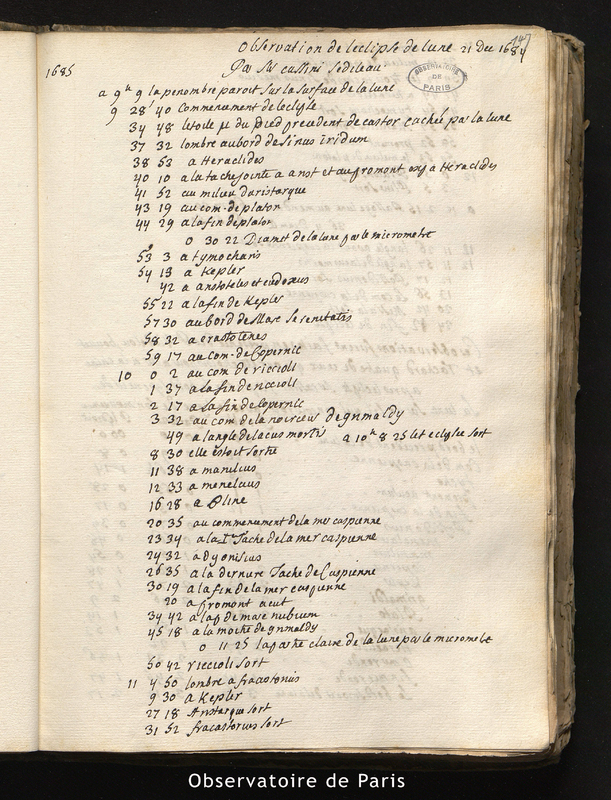 147
Observation de leclipse de lune 21 Dec 1684
1685
Par Mrs cassini Sedileau
OBSERVATOIRE DE PARIS
a 9h 9 la penombre paroit sur la surface de la lune
9 28 40 Commencement de leclipse
34 48 letoile μ du pied precedent de castor cachée par la lune
37 32 lombre au bord de sinus iridum
38 53 a Heraclides
40 10 a la tache jointe a arist et au promont oxy a Heraclides
41 52 au milieu daristarque
43 19 au com. de platon
44 29 a la fin de platon
0 30 22 Diamet de la lune par le micrometre
53 3 a tymocharis
54 13 a Kepler
42 a aristoteles et eudoxus
55 22 a la fin de Kepler
57 30 au bord de Mare Serenitatis
58 32 a erastotenes
59 17 au com. de Copernic
10 0 2 au com de riccioli
1 37 a la fin de riccioli
2 17 a la fin de copernic
3 32 au com de la noirceur de grimaldy
49 a langle de lacus mortis a 10h 8 25 let eclypsee sort
8 30 elle estoit sortie
11 38 a manilius
12 33 a menelaus
16 28 a Pline
20 35 au commencement de la mer caspienne
23 34 a la 1e Tache de la mer caspienne
24 32 a Dyonisius
26 35 a la derniere Tache de Caspienne
30 19 a la fin de la mer caspienne
20 a promont acut
34 42 a la p de mare nubium
45 18 a la moitie de grimaldy
0 11 25 la partie claire de la lune par le micrometre
50 42 riccioli sort
11 4 50 lombre a fracastorius
9 30 a Kepler
27 18 Aristarque sort
31 52 fracastorius sort
Observatoire de Paris